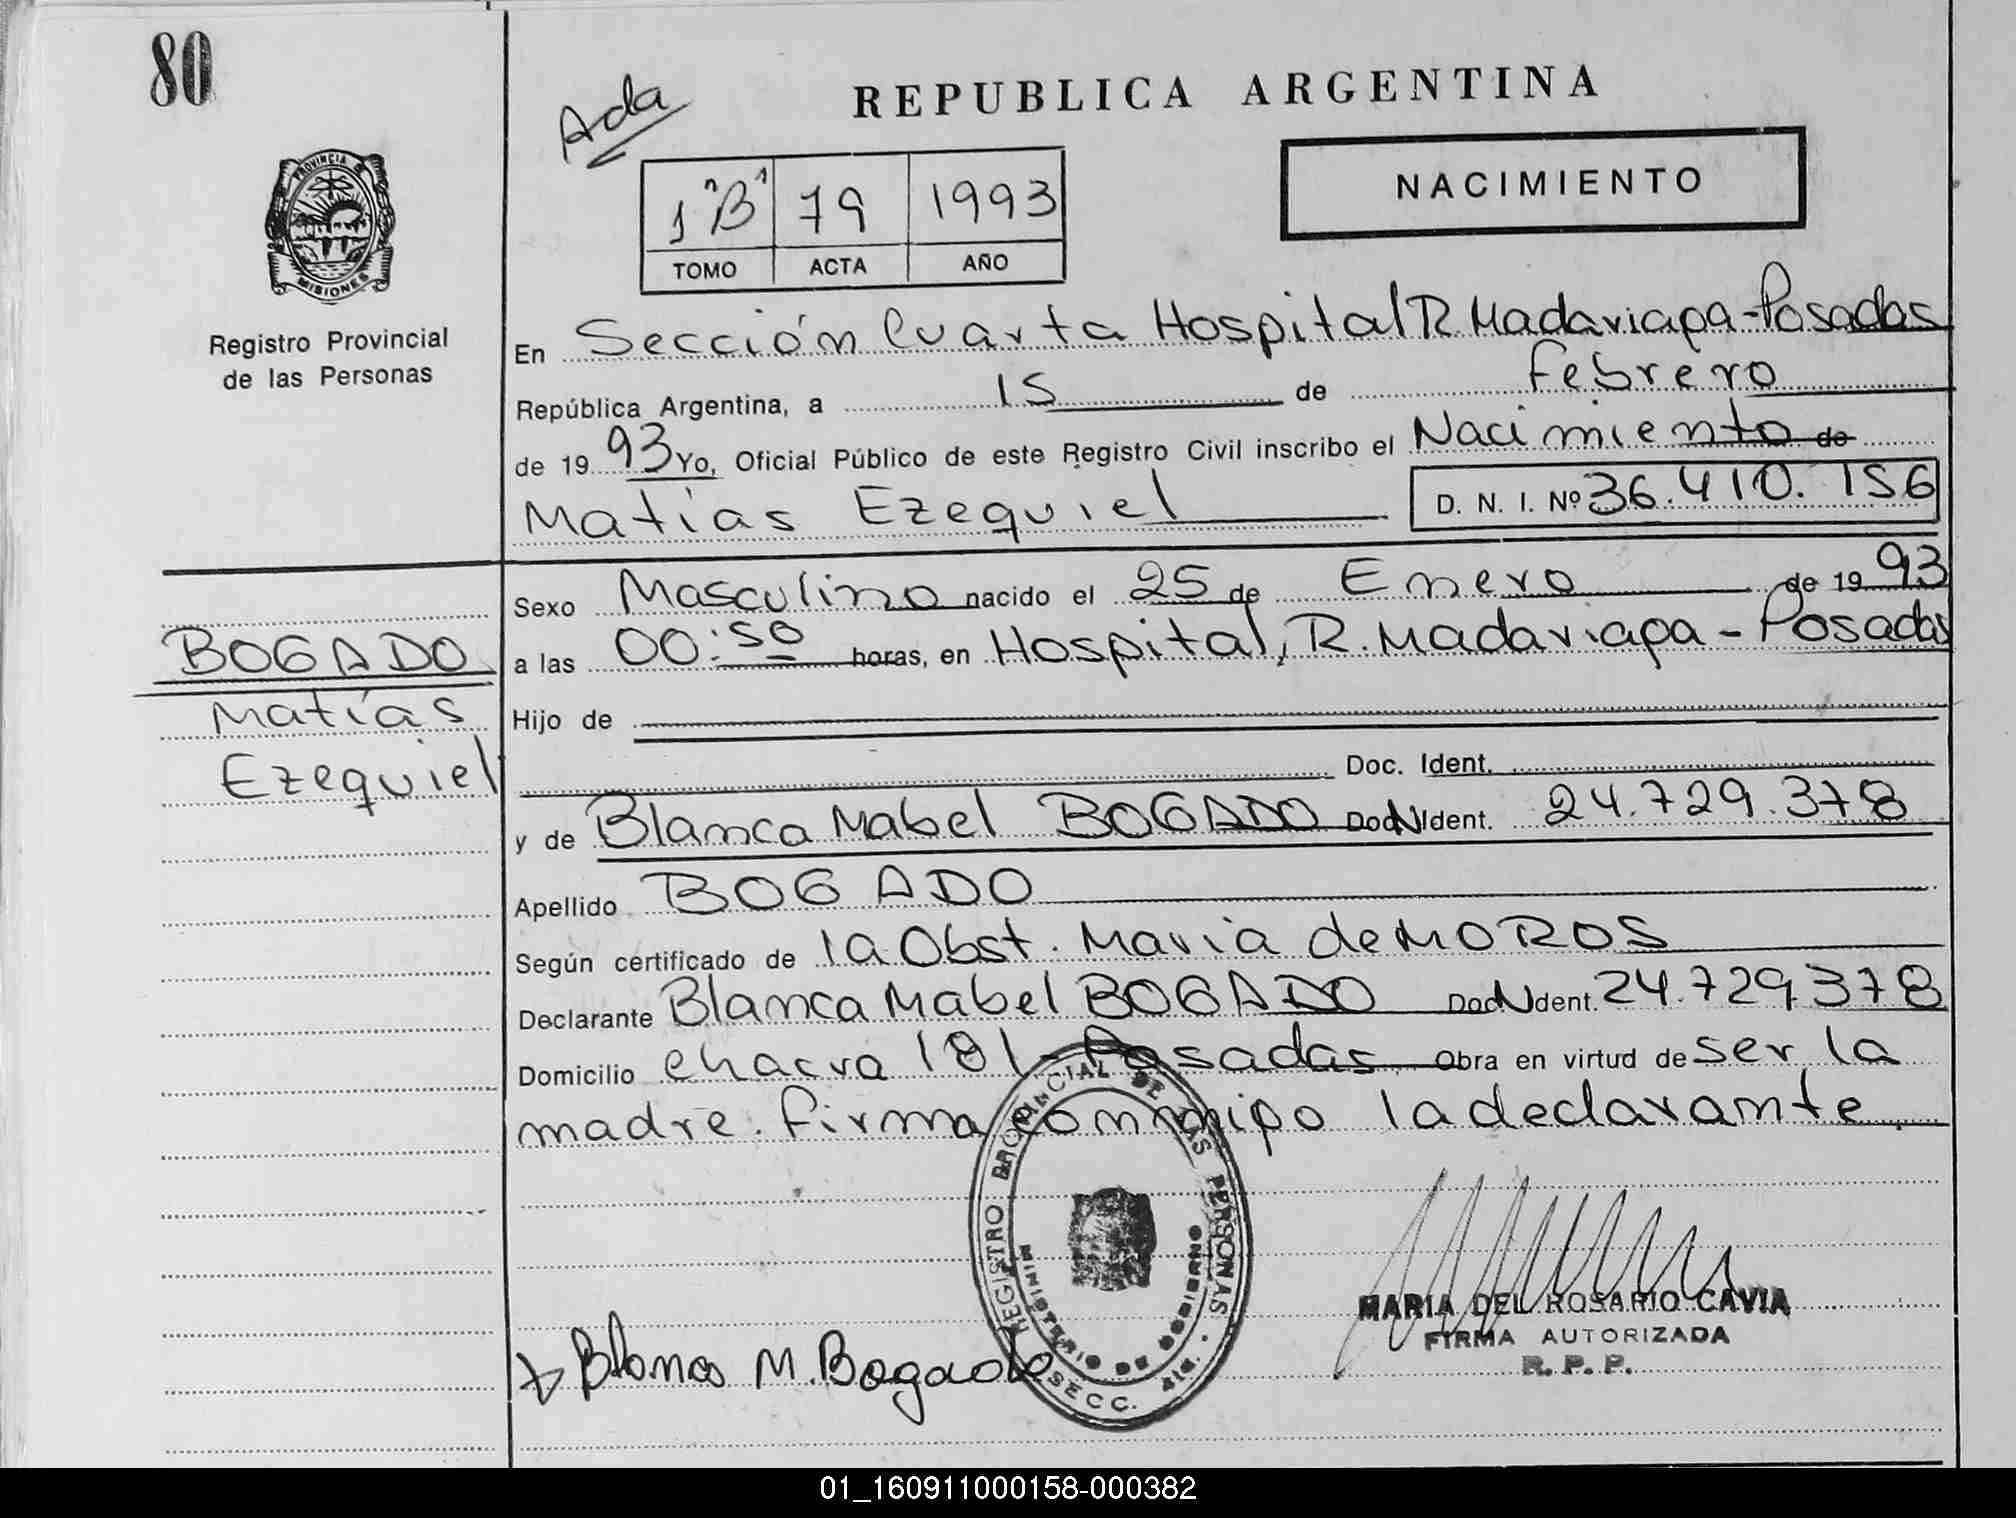 80
REPUBLICA ARGENTINA
Ada
NACIMIENTO
1 "B" 79 1993
TOMO ACTA AÑO
PROVINCIA DE
MISIONES
Registro Provincial
de las Personas
En Sección Cuarta Hospital R. Madariaga - Posadas
República Argentina, a 15 de Febrero
de 19 93 Yo, Oficial Público de este Registro Civil inscribo el Nacimiento de
Matías Ezequiel D. N. I. Nº 36.410.156
Sexo Masculino nacido el 25 de Enero de 19 93
a las 00:50 horas, en Hospital, R. Madariaga - Posadas
BOGADO
Matías
Ezequiel
Hijo de
Doc. Ident.
y de Blanca Mabel BOGADO Doc. Ident. 24.729.378
Apellido BOGADO
Según certificado de la Obst. Maria de MOROS
Declarante Blanca Mabel BOGADO Doc. Ident. 24.729.378
Domicilio chacra 181 - Posadas Obra en virtud de ser la
madre. firma conmigo la declarante
REGISTRO PROVINCIAL DE LAS PERSONAS
MINISTERIO DE GOBIERNO
SECC. 4ta.
MARIA DEL ROSARIO CAVIA
FIRMA AUTORIZADA
R. P. P.
Blanca M. Bogado
01_160911000158-000382